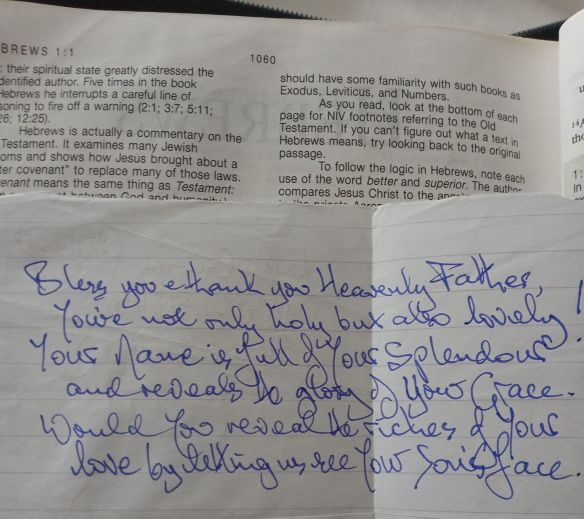 BREWS 1:1
1060
: their spiritual state greatly distressed the
dentified author. Five times in the book
Hebrews he interrupts a careful line of
soning to fire off a warning (2:1; 3:7; 5:11;
26; 12:25).
Hebrews is actually a commentary on the
Testament. It examines many Jewish
oms and shows how Jesus brought about a
ter covenant" to replace many of those laws.
enant means the same thing as Testament:
between God and humanity)
should have some familiarity with such books as
Exodus, Leviticus, and Numbers.
As you read, look at the bottom of each
page for NIV footnotes referring to the Old
Testament. If you can't figure out what a text in
Hebrews means, try looking back to the original
passage.
To follow the logic in Hebrews, note each
use of the word better and superior. The author
compares Jesus Christ to the
Bless you & thank you Heavenly Father,
You're not only holy but also lovely!
Your Name is full of Your Splendour
and reveals the glory of Your Grace.
Would You reveal the riches of Your
love by letting us see Your Son's face.